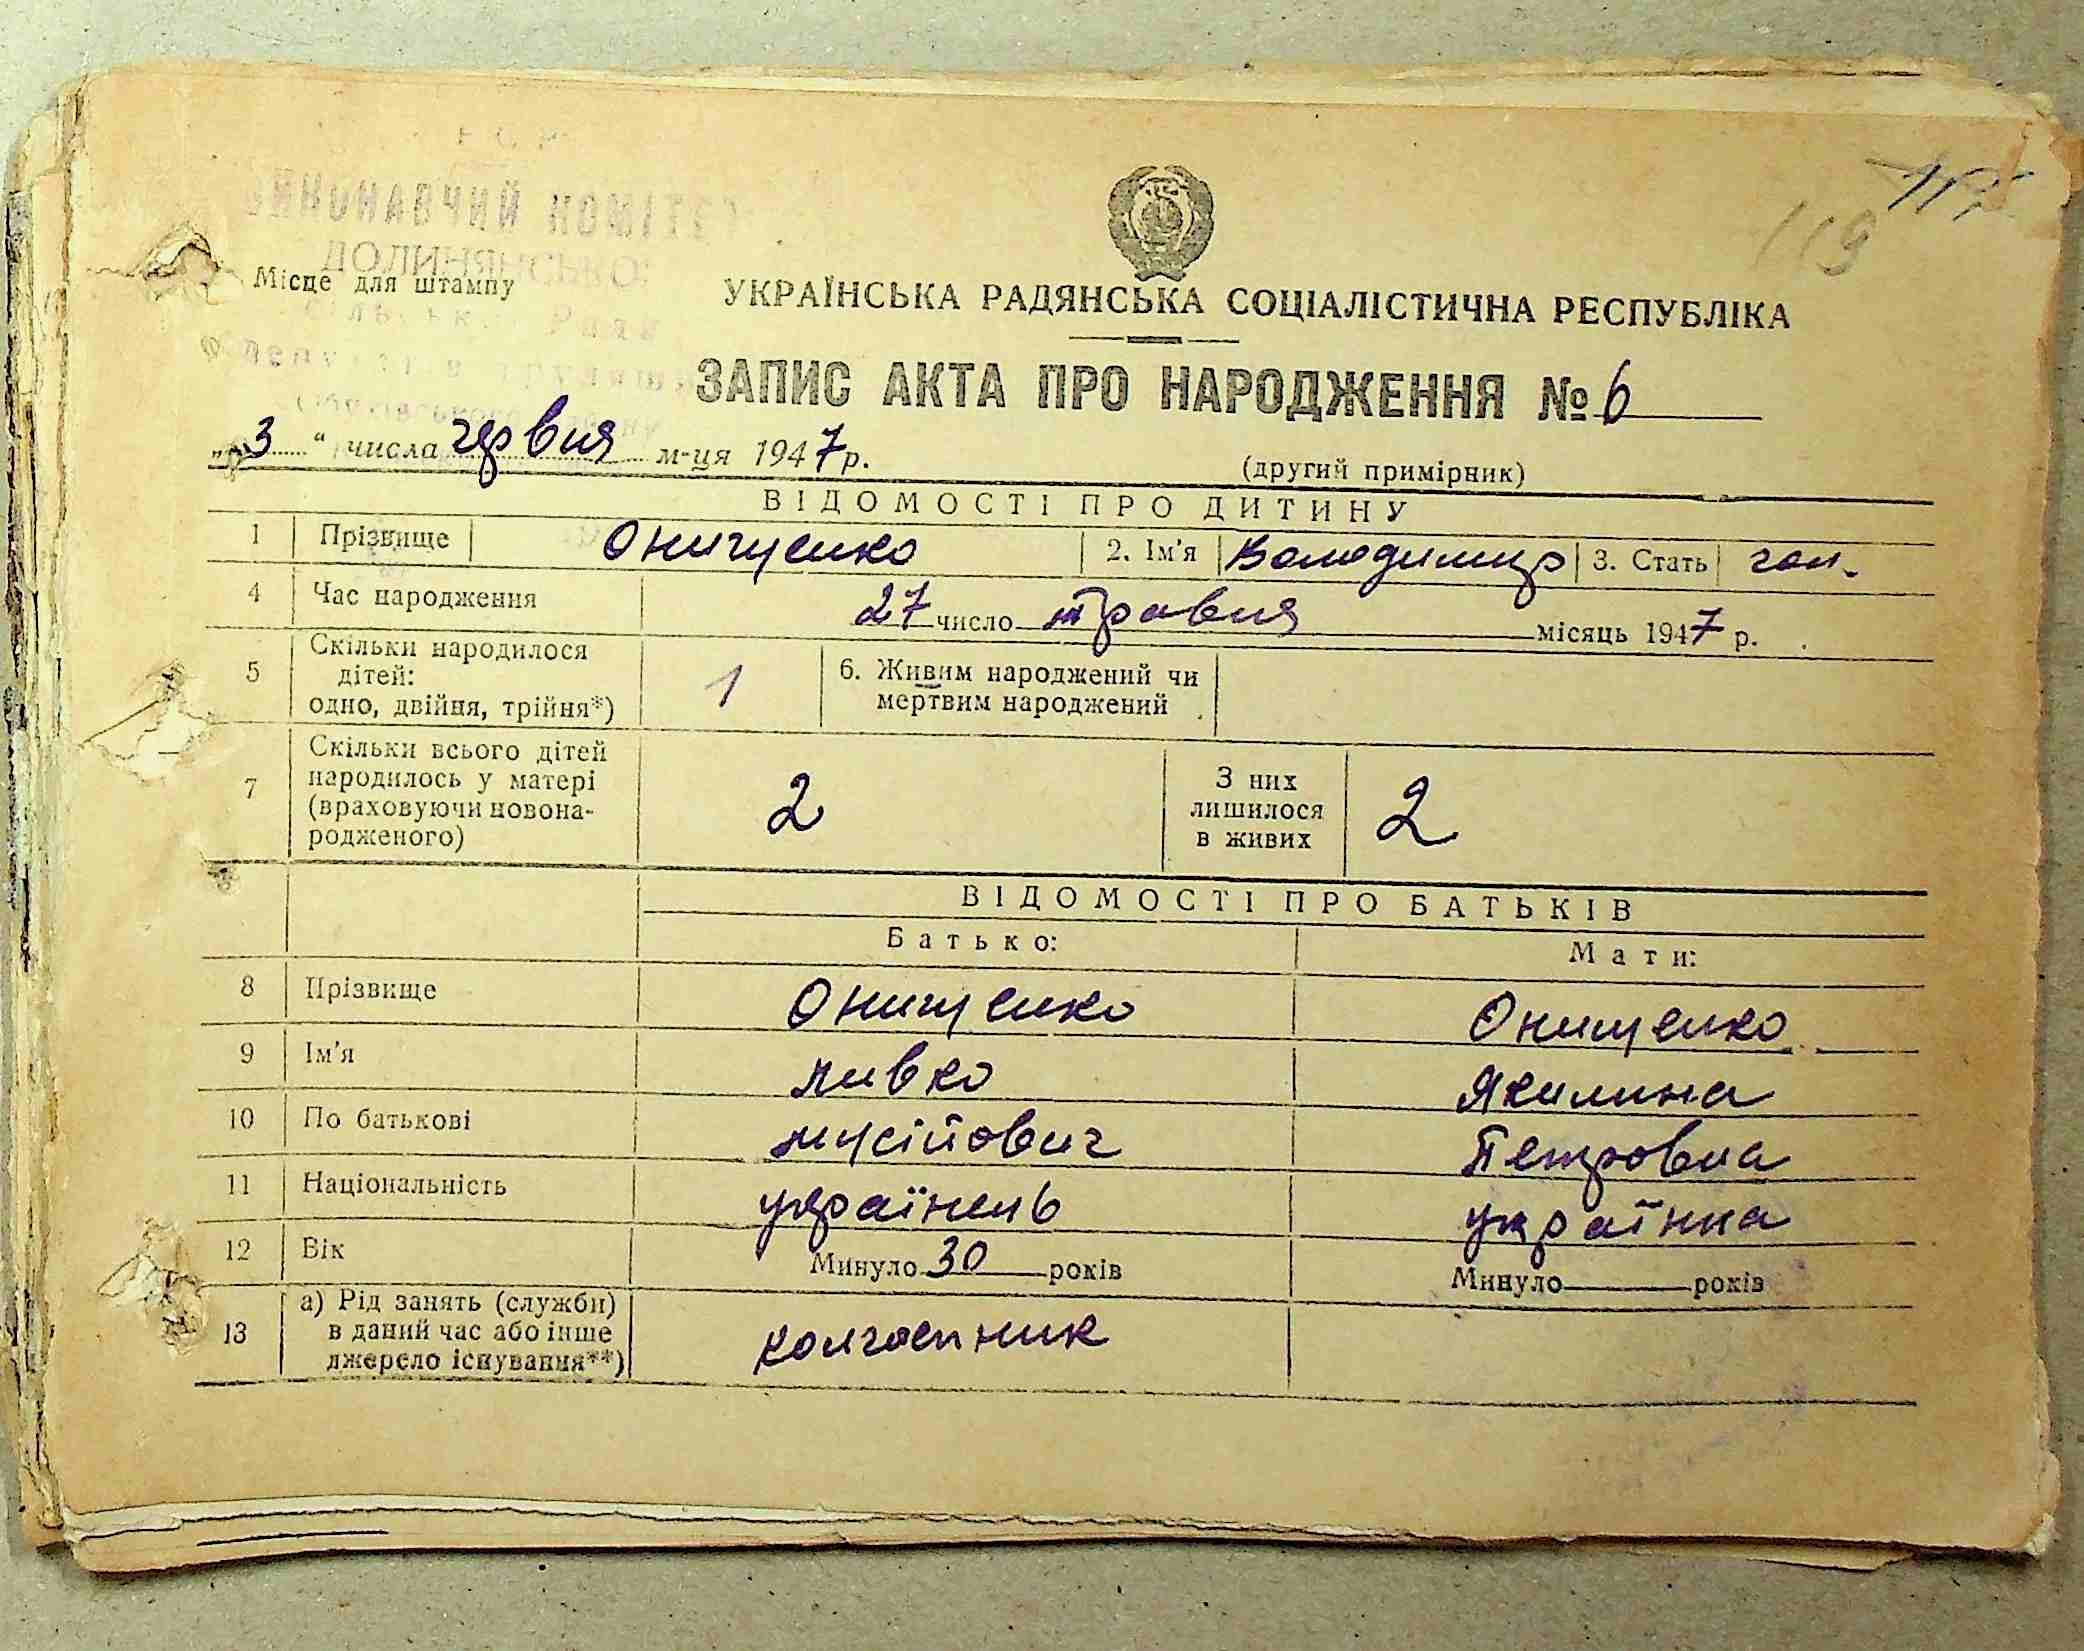 ВИКОНАВЧИЙ КОМІТЕТ
ДОЛИНЯНСЬКО
Місце для штампу
119
УКРАЇНСЬКА РАДЯНСЬКА СОЦІАЛІСТИЧНА РЕСПУБЛІКА
ЗАПИС АКТА ПРО НАРОДЖЕННЯ № 6
„3“ числа червня м-ця 1947 р.
(другий примірник)
ВІДОМОСТІ ПРО ДИТИНУ
1 Прізвище Онищенко 2. Ім'я Володимир 3. Стать чол.
4 Час народження 27 число травня місяць 1947 р.
5 Скільки народилося дітей: одно, двійня, трійня*) 1 6. Живим народжений чи мертвим народжений
7 Скільки всього дітей народилось у матері (враховуючи новонародженого) 2 З них лишилося в живих 2
ВІДОМОСТІ ПРО БАТЬКІВ
Батько: Мати:
8 Прізвище Онищенко Онищенко
9 Ім'я Ливко Якилина
10 По батькові Мусійович Петровна
11 Національність українець українка
12 Вік Минуло 30 років Минуло років
13 а) Рід занять (служби) в даний час або інше джерело існування**) колгоспник